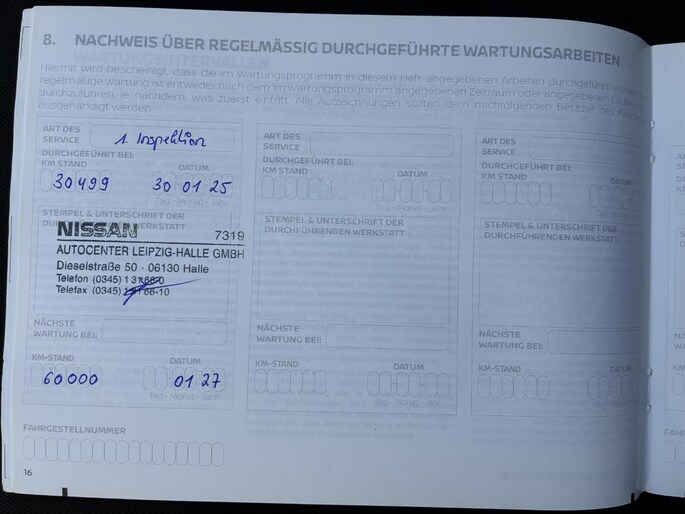 8. NACHWEIS ÜBER REGELMÄSSIG DURCHGEFÜHRTE WARTUNGSARBEITEN
Hiermit wird bescheinigt, dass die im Wartungsprogramm in diesem Heft angegebenen Arbeiten durchgeführt wurden.
regelmäßige Wartung ist entweder nach dem im Wartungsprogramm angegebenen Zeitraum oder angegebenen
durchzuführen, je nachdem, was zuerst eintritt. Alle Aufzeichnungen sollten dem nachfolgenden Besitzer des
ausgehändigt werden.
ART DES SERVICE 1. Inspektion
DURCHGEFÜHRT BEI:
KM STAND DATUM
30499 30 01 25
Tag - Monat - Jahr
STEMPEL & UNTERSCHRIFT DER
NISSAN 7319
AUTOCENTER LEIPZIG-HALLE GMBH
Dieselstraße 50 · 06130 Halle
Telefon (0345)
Telefax (0345)
NÄCHSTE
WARTUNG BEI:
KM-STAND DATUM
60000 01 27
Tag - Monat - Jahr
ART DES
SERVICE
DURCHGEFÜHRT BEI:
KM STAND DATUM
Tag - Monat - Jahr
STEMPEL & UNTERSCHRIFT DER
DURCHFÜHRENDEN WERKSTATT
NÄCHSTE
WARTUNG BEI:
KM-STAND DATUM
Tag - Monat - Jahr
ART DES
SERVICE
DURCHGEFÜHRT BEI:
KM STAND DATUM
Tag - Monat - Jahr
STEMPEL & UNTERSCHRIFT DER
DURCHFÜHRENDEN WERKSTATT
NÄCHSTE
WARTUNG BEI:
KM-STAND DATUM
Tag - Monat - Jahr
FAHRGESTELLNUMMER
16